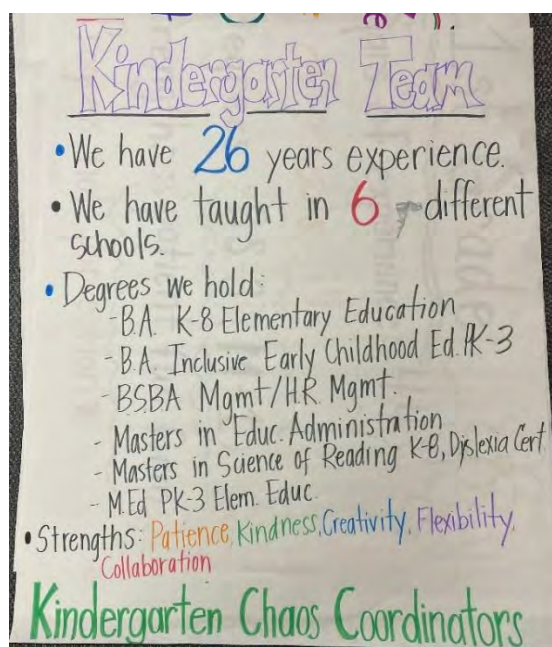 Kindergarten Team
• We have 26 years experience.
• We have taught in 6 different
schools.
• Degrees we hold:
- B.A. K-8 Elementary Education
- B.A. Inclusive Early Childhood Ed. PK-3
- BSBA Mgmt/H.R. Mgmt.
- Masters in Educ. Administration
- Masters in Science of Reading K-8, Dyslexia Cert
- M.Ed PK-3 Elem. Educ.
• Strengths: Patience, Kindness, Creativity, Flexibility,
Collaboration
Kindergarten Chaos Coordinators